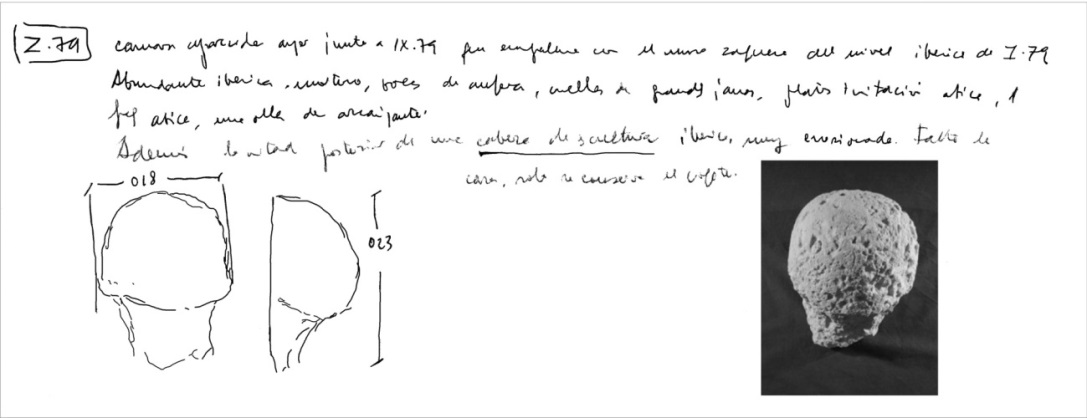 Z.79 camara aparecida ayer junto a IX.79 que empalma con el muro zapatero del nivel iberico de I.79
Abundante iberica, mortero, bocas de anfora, cuellos de grandes jarras, plato imitación atica, 1
frg atico, una olla de
Además la mitad posterior de una cabeza de escultura iberica, muy erosionada. Falta la
cara, solo se conserva el cogote.
018
023